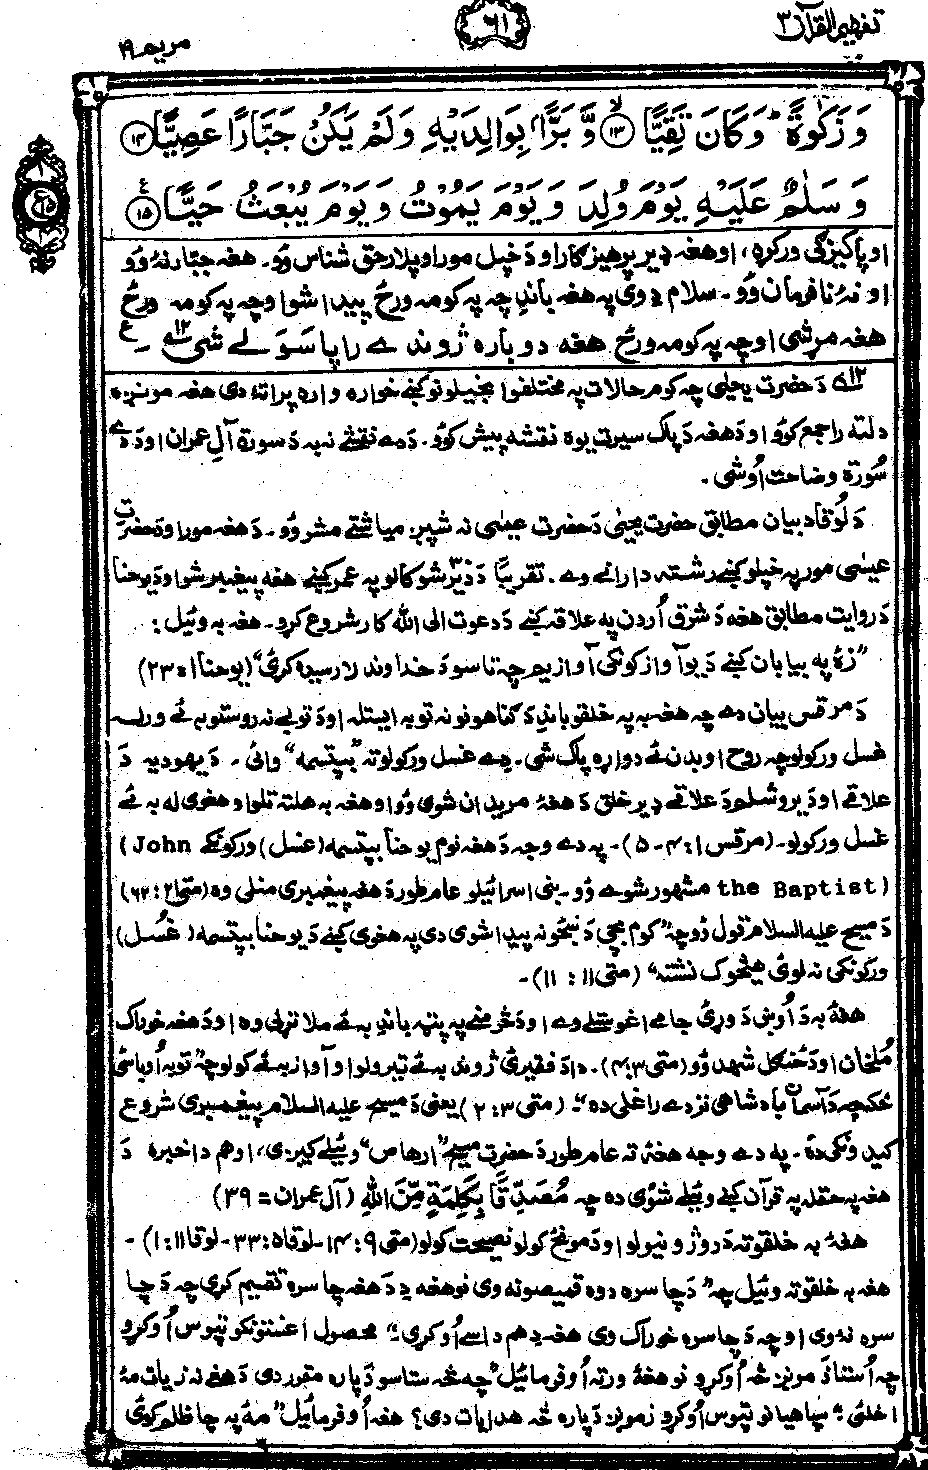 تفهيم القرآن ٣
٦١
مريم ١٩
وَ زَكٰوةً ؕ وَ كَانَ تَقِيًّا ﴿١٣﴾ وَّ بَرًّۢا بِوَالِدَيْهِ وَ لَمْ يَكُنْ جَبَّارًا عَصِيًّا ﴿١٤﴾
وَ سَلٰمٌ عَلَيْهِ يَوْمَ وُلِدَ وَ يَوْمَ يَمُوْتُ وَ يَوْمَ يُبْعَثُ حَيًّا ﴿١٥﴾
او پاكيزگي وركړه، او هغه ډير پرهيزگار او دَ خپل مور او پلار حق شناس وُو۔ هغه جبّار نهٔ وُو
او نهٔ نافرمان وُو۔ سلام دِ وي په هغه باندِ چه په كومه ورځ پيدا شو اوچه په كومه ورځ
هغه مړ شي اوچه په كومه ورځ هغه دوباره ژوندے راپاسَولے شي ١٢
١٢ دَ حضرت يحيٰي چه كوم حالات په مختلفو انجيلونو كښے خواره واره پراتهٔ دي هغه مونږه
دلته راجمع كوُو او دَ هغه دَ پاك سيرت يوه نقشه پيش كوُو۔ دَ دے نقشے نه به دَ سورة آلِ عمران او دَ دے
سُورة وضاحت اُوشي۔
دَ لُوقا دَ بيان مطابق حضرت يحيٰي دَ حضرت عيسٰي نه شپږ مياشتے مشر وُو۔ دَ هغه مور او دَ حضرت
عيسٰي مور په خپلو كښے رشته دارانے وے۔ تقريبًا دَ ديرشو كالو په عمر كښے هغه پيغمبر شو او دَ يوحنا
دَ روايت مطابق هغه دَ شرق اُردن په علاقه كښے دَ دعوت الى الله كار شروع كړو۔ هغه به وئيل :
"زهٔ په بيابان كښے دَ يو آواز كونكي آواز يم چه تاسو دَ خداوند لار سيده كړئ" (يوحنا ١ = ٢٣)
دَ مرقس بيان دے چه هغه به په خلقو باندِ دَ گناهونو نه توبه ايستله او دَ توبے نه روستو به ئے ورله
غسل وركولو چه روح او بدن ئے دواړه پاك شي۔ دِے غسل وركولو ته "بپتسمه" وائي۔ دَ يهوديه دَ
علاقے او دَ يروشلم دَ علاقے ډير خلق دَ هغهٔ مريدان شوي وُو او هغه به هلته تلو او هغوي له به ئے
غسل وركولو۔ (مرقس ١ : ٤ - ٥)۔ په دے وجه دَ هغه نوم يوحنا بپتسمه (غسل) وركونكے (John
the Baptist) مشهور شوے وُو۔ بني اسرائيلو عام طور دَ هغه پيغمبري منلي وه (متي ٢١ : ٢٦)
دَ مسيح عليه السلام قول وُو چه "كوم بچي دَ ښځو نه پيدا شوي دي په هغوي كښے دَ يوحنا بپتسمه (غُسل)
وركونكي نه لوئ هيڅوك نشته" (متي ١١ : ١١)۔
هغهٔ به دَ اُوښ دَ وړئ جامے اغوستلے وے او دَ څرمنے په پټه باندِ به ئے ملا تړلي وه او دَ هغه خوراك
مُلخان او دَ ځنگل شهد وُو (متي ٣ : ٤)۔ دا دَ فقيرئ ژوند به ئے تيرولو او آواز به ئے كولو چه "توبه اُوباسئ
ځكه چه دَ آسمان بادشاهي نزدے راغلي ده"۔ (متي ٣ : ٢) يعني دَ مسيح عليه السلام پيغمبري شروع
كيدونكي ده۔ په دے وجه هغهٔ ته عام طور دَ حضرت مسيح "ارهاص" وئيلے كيږي، او هم دا خبره دَ
هغه په حقله په قرآن كښے وئيلے شوي ده چه مُصَدِّقًۢا بِكَلِمَةٍ مِّنَ اللهِ (آل عمران = ٣٩)
هغهٔ به خلقو ته دَ روژو نيولو او دَ مونځ كولو نصيحت كولو (متي ٩ : ١٤ - لوقا ٥ : ٣٣ - لوقا ١١ : ١)۔
هغه به خلقو ته وئيل چه "دَ چا سره دوه قميصونه وي نو هغه دِ دَ هغه چا سره تقسيم كړي چه دَ چا
سره نهٔ وي او چه دَ چا سره خوراك وي هغه دِ هم داسے اُوكړي"۔ محصول اغستونكو تپوس اُوكړو
چه اُستاذ مونږ څهٔ اُوكړو نو هغهٔ ورته اُوفرمائيل "چه څهٔ ستاسو دَ پاره مقرر دي دَ هغے نه زيات مهٔ
اخلئ"۔ سپاهيانو تپوس اُوكړو زمونږ دَ پاره څهٔ هدايات دي؟ هغه اُوفرمائيل "مهٔ په چا ظلم كوئ